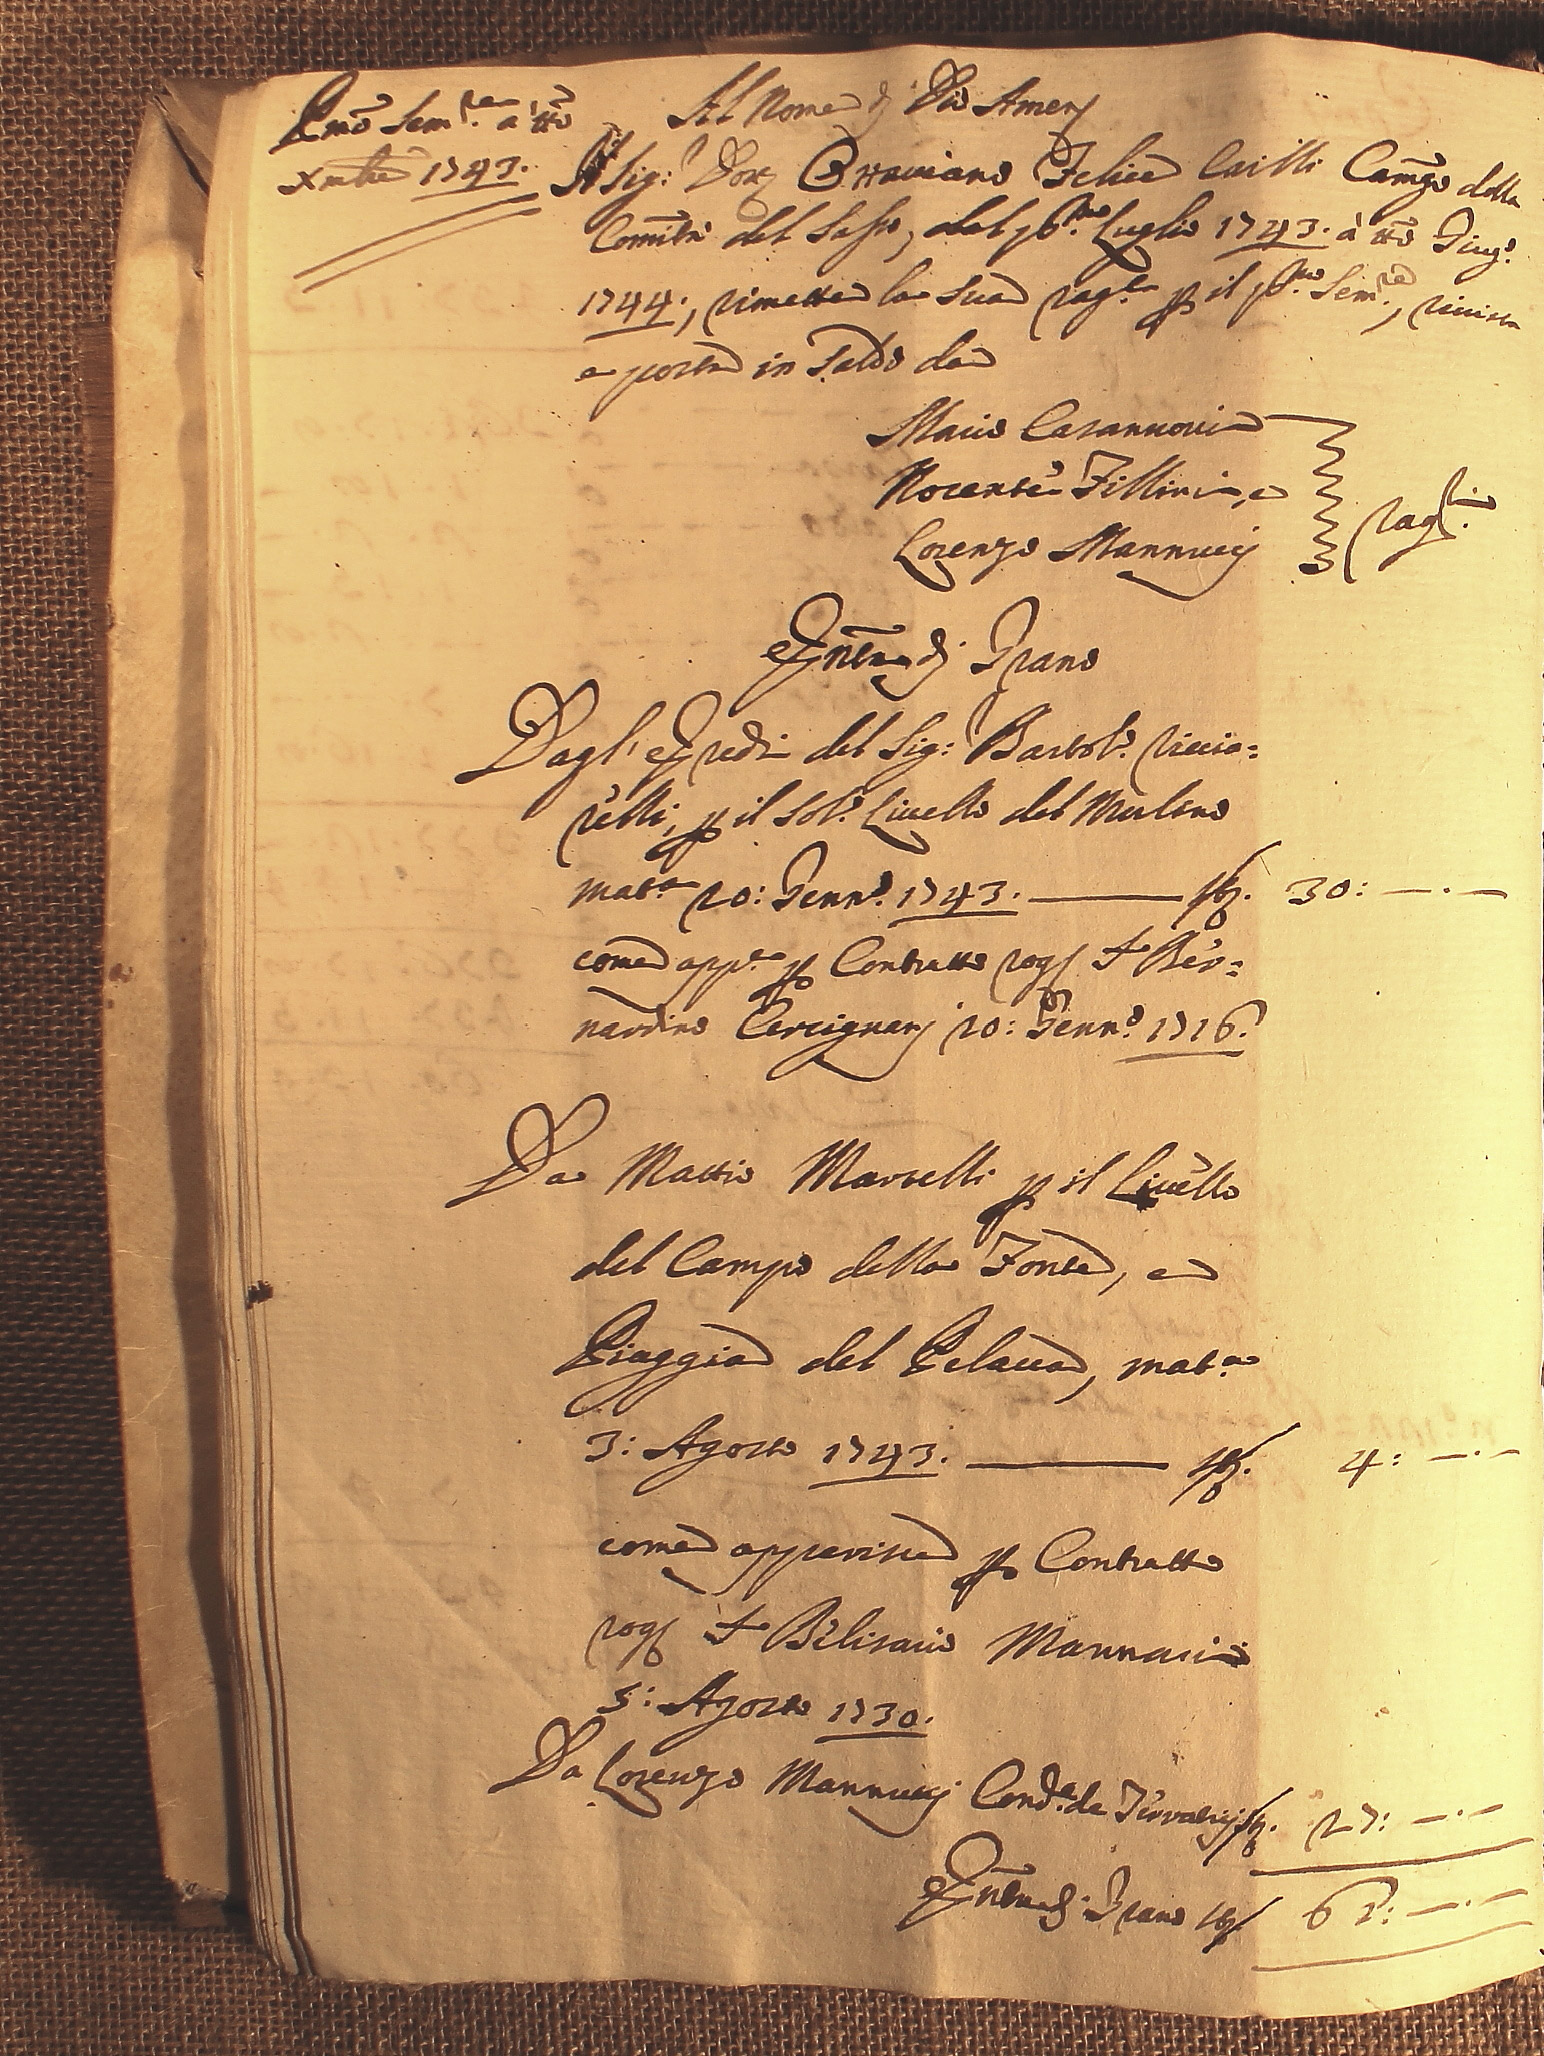 Pmõ Sem.re a tt̃o
Xmbre 1743.
Al Nome di Dio Amen
Il Sig: Dor Ottaviano Felice Cailli Camgo della
Comtà del Sasso, dal pmo Luglio 1743. à tt̃o Giug.o
1744., rimette la sua rag.e p il pmo Sem.re, rivista
e posta in Saldo da
Mario Casannovi
Nocente Fillini, e
Lorenzo Mannucij
rag.ri
Entra di Grano
Dagl' Eredi del Sig: Bartol.o Riccia=
relli, p il sol.o Livello del Mulino
mat.o 20: Genn.o 1743. — sa. 30: —.—
come app.e p Contratto rog S.e Ber=
nardino Cercignanj 20: Genn.o 1716.
Da Mattio Martelli p il Livello
del Campo della Fonte, e
Piaggia del Pelacca, mat.o
3: Agosto 1743. — sa. 4: —.—
come apparisce p Contratto
rog S.e Belisario Mannaci
3: Agosto 1730.
Da Lorenzo Mannucij Cond.e de Terratici sa. 27: —.—
Entra di Grano sa 61: —.—